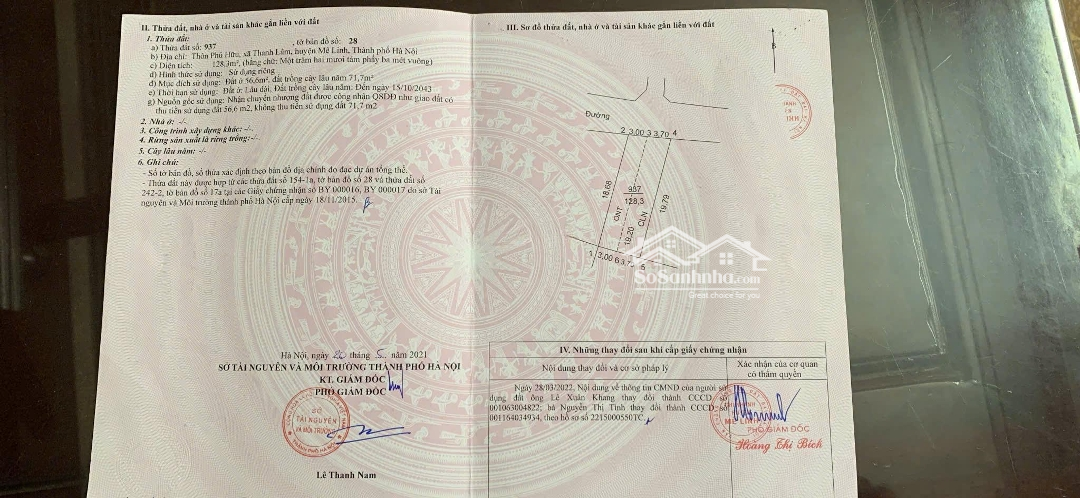 II. Thửa đất, nhà ở và tài sản khác gắn liền với đất
1. Thửa đất:
a) Thửa đất số: 937, tờ bản đồ số: 28
b) Địa chỉ: Thôn Phú Hữu, xã Thanh Lâm, huyện Mê Linh, Thành phố Hà Nội
c) Diện tích: 128,3m², (bằng chữ: Một trăm hai mươi tám phẩy ba mét vuông)
d) Hình thức sử dụng: Sử dụng riêng
đ) Mục đích sử dụng: Đất ở 56,6m²; đất trồng cây lâu năm 71,7m²
e) Thời hạn sử dụng: Đất ở: Lâu dài; Đất trồng cây lâu năm: Đến ngày 15/10/2043
g) Nguồn gốc sử dụng: Nhận chuyển nhượng đất được công nhận QSDĐ như giao đất có
thu tiền sử dụng đất 56,6 m2, không thu tiền sử dụng đất 71,7 m2
2. Nhà ở: -/-
3. Công trình xây dựng khác: -/-
4. Rừng sản xuất là rừng trồng: -/-
5. Cây lâu năm: -/-
6. Ghi chú:
- Số tờ bản đồ, số thửa xác định theo bản đồ địa chính đo đạc dự án tổng thể.
- Thửa đất này được hợp từ các thửa đất số 154-1a, tờ bản đồ số 28 và thửa đất số
242-2, tờ bản đồ số 17a tại các Giấy chứng nhận số BY 000016, BY 000017 do sở Tài
nguyên và Môi trường thành phố Hà Nội cấp ngày 18/11/2015.
Hà Nội, ngày 26 tháng 5 năm 2021
SỞ TÀI NGUYÊN VÀ MÔI TRƯỜNG THÀNH PHỐ HÀ NỘI
KT. GIÁM ĐỐC
PHÓ GIÁM ĐỐC
SỞ
TÀI NGUYÊN
VÀ MÔI TRƯỜNG
THÀNH PHỐ HÀ NỘI
Lê Thanh Nam
III. Sơ đồ thửa đất, nhà ở và tài sản khác gắn liền với đất
B
Đường
2 3,00 3 3,70 4
18,68
937
128,3
ONT
CLN
19,20
19,79
1 3,00 6 3,7 5
SoSanhnha.com
Great choice for you
IV. Những thay đổi sau khi cấp giấy chứng nhận
Nội dung thay đổi và cơ sở pháp lý
Xác nhận của cơ quan
có thẩm quyền
Ngày 28/03/2022, Nội dung về thông tin CMND của người sử
dụng đất ông Lê Xuân Khang thay đổi thành CCCD số
001063004822; bà Nguyễn Thị Tình thay đổi thành CCCD số
001164034934, theo hồ sơ số 2215000550TC.
MÊ LINH
PHÓ GIÁM ĐỐC
Hoàng Thị Bích